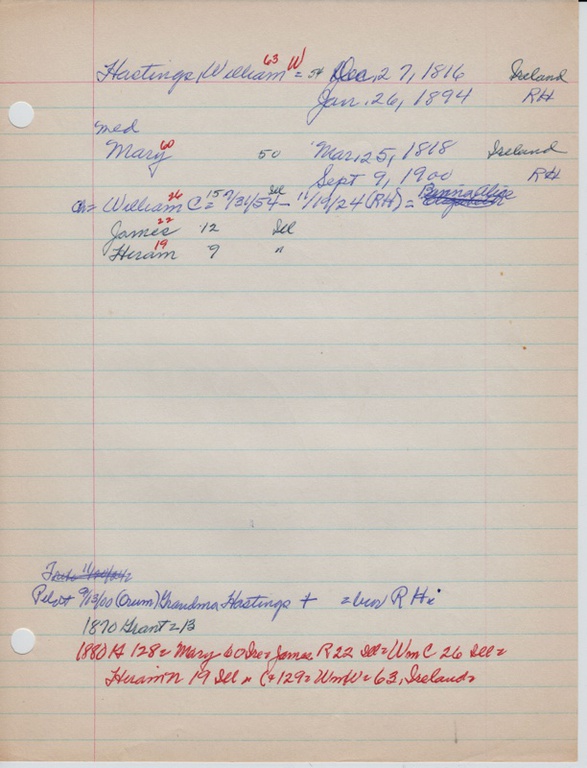 Hastings, William 63 W = 54 Dec. 27, 1816 Ireland
Jan. 26, 1894 RH
med
Mary 60 50 Mar. 25, 1818 Ireland
Sept 9, 1900 RH
Ch = William 26 C = 15 7/31/54 Del - 11/19/24 (RH) =
James 22 12 Del
Hiram 19 9 "
Pilot 9/13/00 (Orum) Grandma Hastings + = bur R H
1870 Grant = 13
1880 H 128 = Mary 60 Ire = James R 22 Del = Wm C 26 Del =
Hiram n 19 Del = C = 129 = Wm W = 63, Ireland =